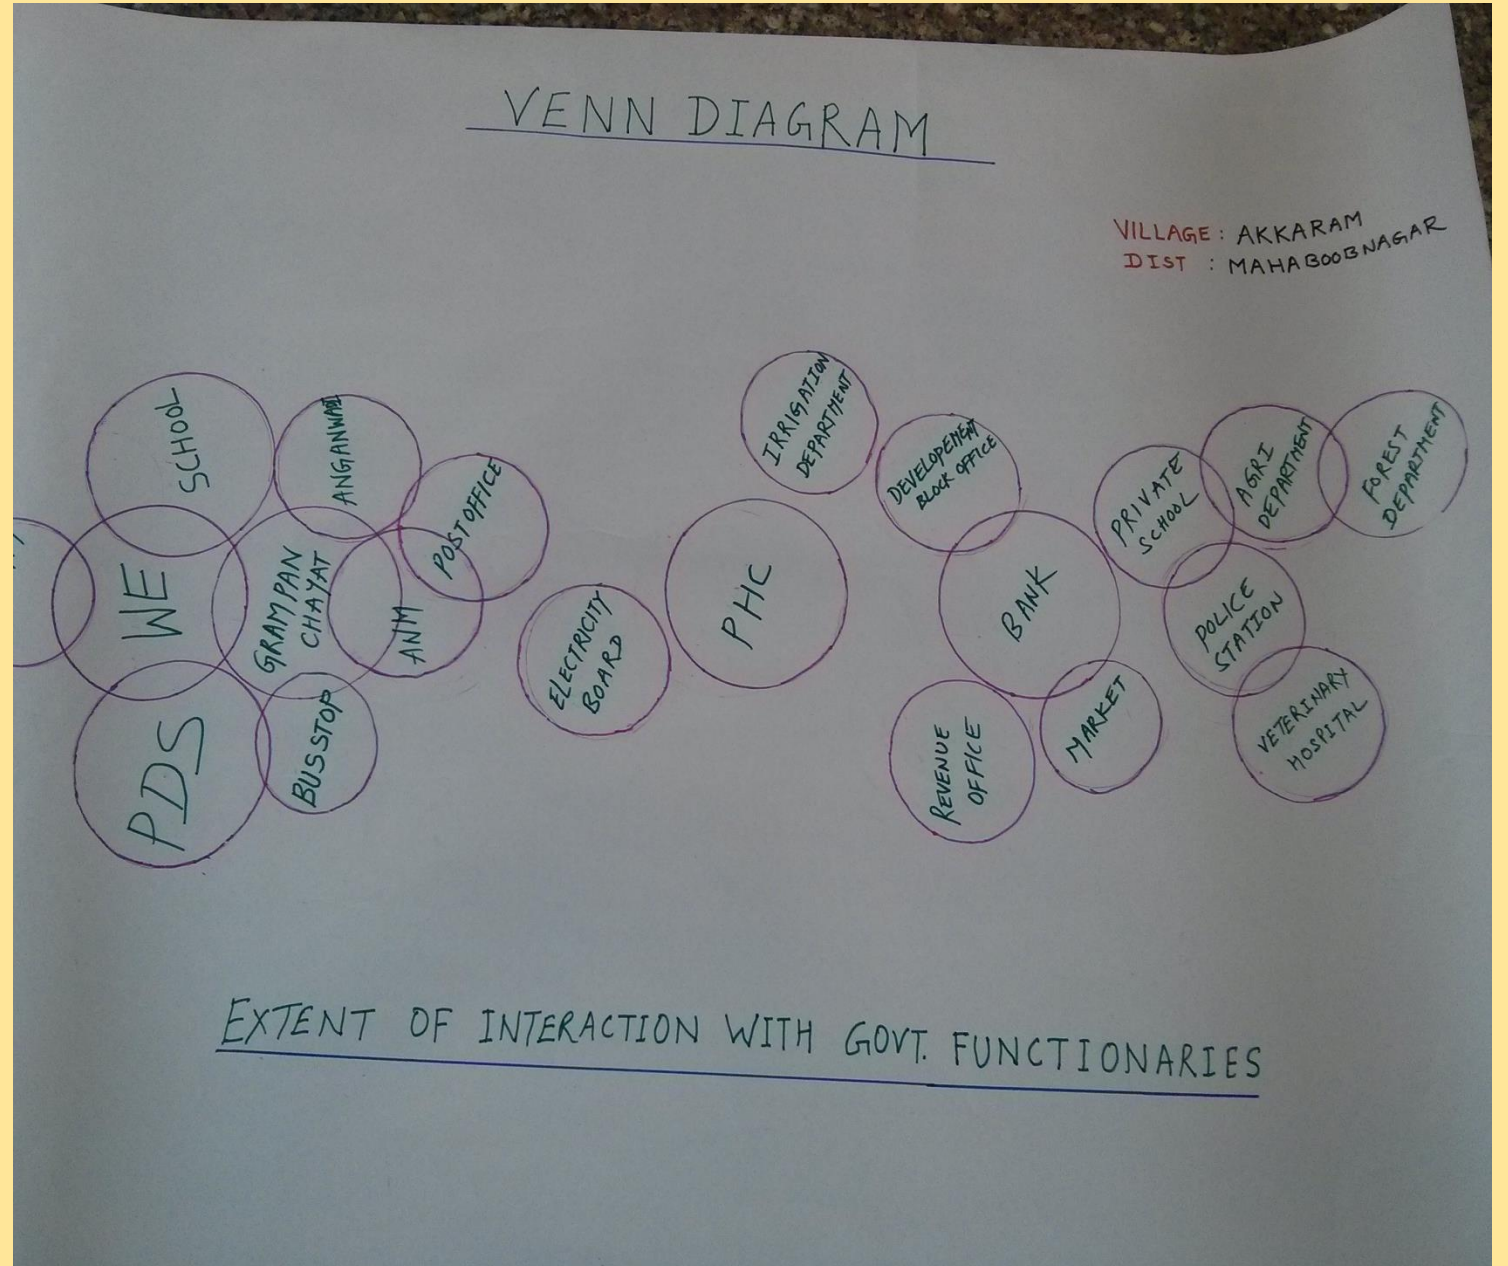 VENN DIAGRAM
VILLAGE: AKKARAM
DIST : MAHABOOBNAGAR
SCHOOL
ANGANWADI
POSTOFFICE
WE
GRAMPAN
CHAYAT
ANM
PDS
BUSSTOP
ELECTRICITY
BOARD
PHC
IRRIGATION
DEPARTMENT
DEVELOPEMENT
BLOCK OFFICE
BANK
REVENUE
OFFICE
MARKET
PRIVATE
SCHOOL
AGRI
DEPARTMENT
FOREST
DEPARTMENT
POLICE
STATION
VETERINARY
HOSPITAL
EXTENT OF INTERACTION WITH GOVT. FUNCTIONARIES